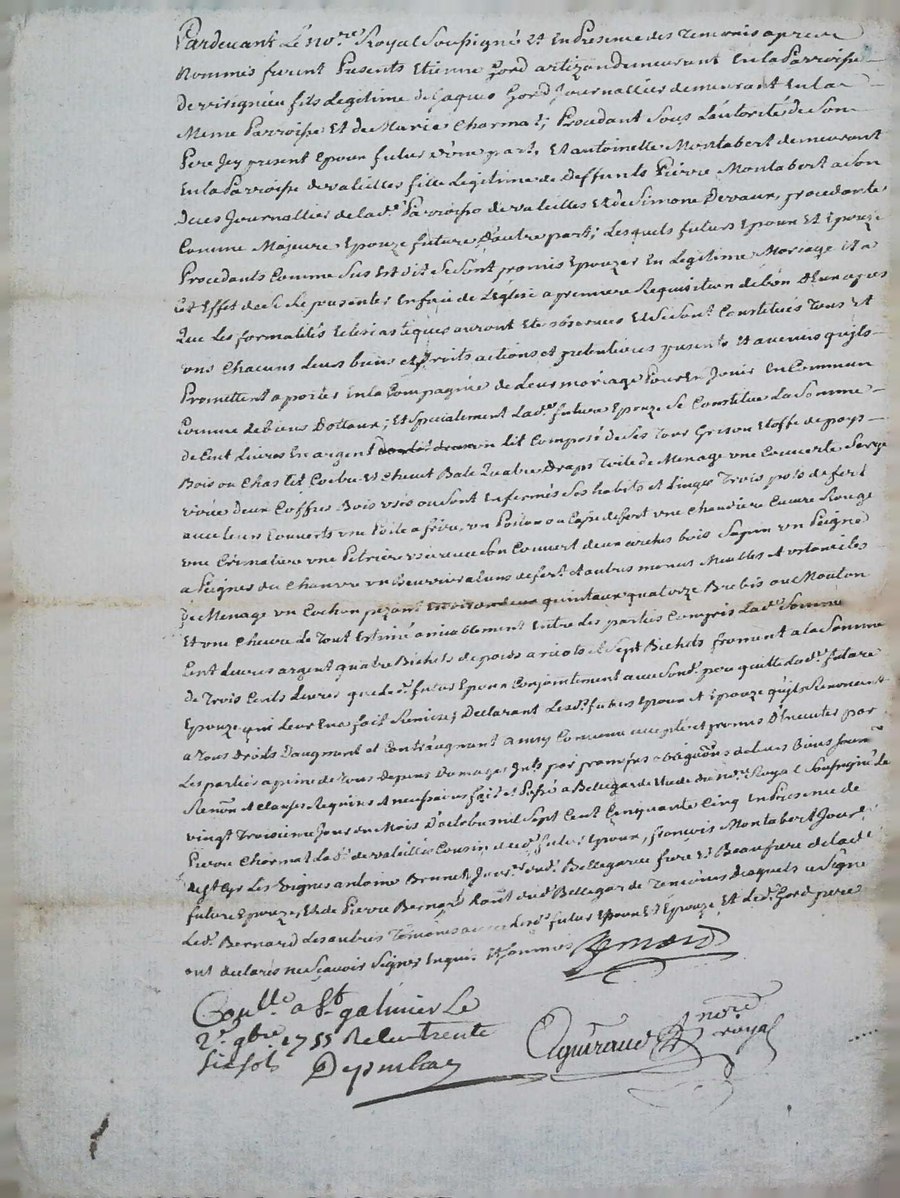 Pardevant Le no.re Royal Soussigné Et En Presence des Temoins apres
Nommés furent Presents Etienne Gord artizan demeurant En la Parroisse
De virigneu fils Legitime de Jaque Gord Journallier demeurant En la
Meme Parroisse Et de Marie Charmat; Procedant Sous L'autorité de Son
Pere Icy present Epoux futur d'une part, Et antoinette Montabert demeurant
En la Parroisse de valeilles fille Legitime de Deffunt Pierre Montabert a Son
Deces Journallier de lad.e Parroisse de valeilles Et de Simone Devaux, procedante
Comme Majeure Epouze future D'autre part; Lesquels futurs Epoux Et Epouze
Procedants Comme Sus Est dit Se Sont promis Epouzer En Legitime Mariage Et a
Cet Effet de Se presenter En face de L'Eglise a premiere Requisition de L'un D'Eux apres
Que Les formalités Eclesiastiques auront Eté observées Et Se Sont Constitués Tous Et
uns Chacuns Leurs biens Et Droits actions Et pretentions presents Et avenir qu'ils
Promettent aporter En la Compagnie de Leur mariage Pour En Jouir En Commun
Comme de biens Dottaux; Et Specialement Lad.e future Epouze Se Constitue La Somme
de Cent Livres En argent un lit Composé de Ses Tour Etoffe de pays
Bois ou Chaslit Coëtre Et Chevet Bale Quatre Draps Toile de Menage une Couverte
deux Coffres Bois ou Sont Enfermés Ses habits Et Linges Trois pots de fert
avec leurs Couverts une Poile a frire, un de fert une Chaudiere Cuivre Rouge
une Crémaliere une Petriere Son Couvert deux arches bois Sapin un Peigne
a Peigner du Chanvre un de fert Et autres menus Meubles Et ustanciles
De Menage un Cochon pezant quintaux quatorze Brebis ou Mouton
Et une Chevre Le Tout Estimé amiablement Entre Les parties Compris Lad.e Somme
Cent Livres argent quatre Bichets de Sept Bichets froment a la Somme
de Trois Cents Livres que led. futur Epoux Conjointement avec Sond. pere quitte lad.e future
Epouze qui Leur En a fait Remise; Declarant Lesd. futurs Epoux Et Epouze qu'ils Renoncent
a Tous Droits D'augment Et Contraugment ainsy Convenu accepté Et promis D'Executer par
Les parties a peine de Tous Depens Domages Interets par
Renon. Et Clauses Requises Et necessaires fait Et Passé a Bellegarde Etude du no.re Royal Soussigné Le
vingt Troisieme Jour du Mois D'octobre mil Sept Cent Cinquante Cinq En Presence de
Pierre Charmat de valeilles Cousin dud. futur Epoux, françois Montabert Jour.
de St Cyr Les vignes antoine Brunet Jour. dud. Bellegarde frere Et Beaufrere de lad.e
future Epouze, Et de Pierre Bernard dud. Bellegarde Temoins desquels a Signé
Led. Bernard Les autres Temoins avec lesd. futur Epoux Et Epouze Et led. Gord pere
ont declarés ne Sçavoir Signer Enquis Et Sommés Bernard
Con.llé a St galmier Le
2e 9bre 1755 Recu trente
Six Sols
Aguiraud no.re royal